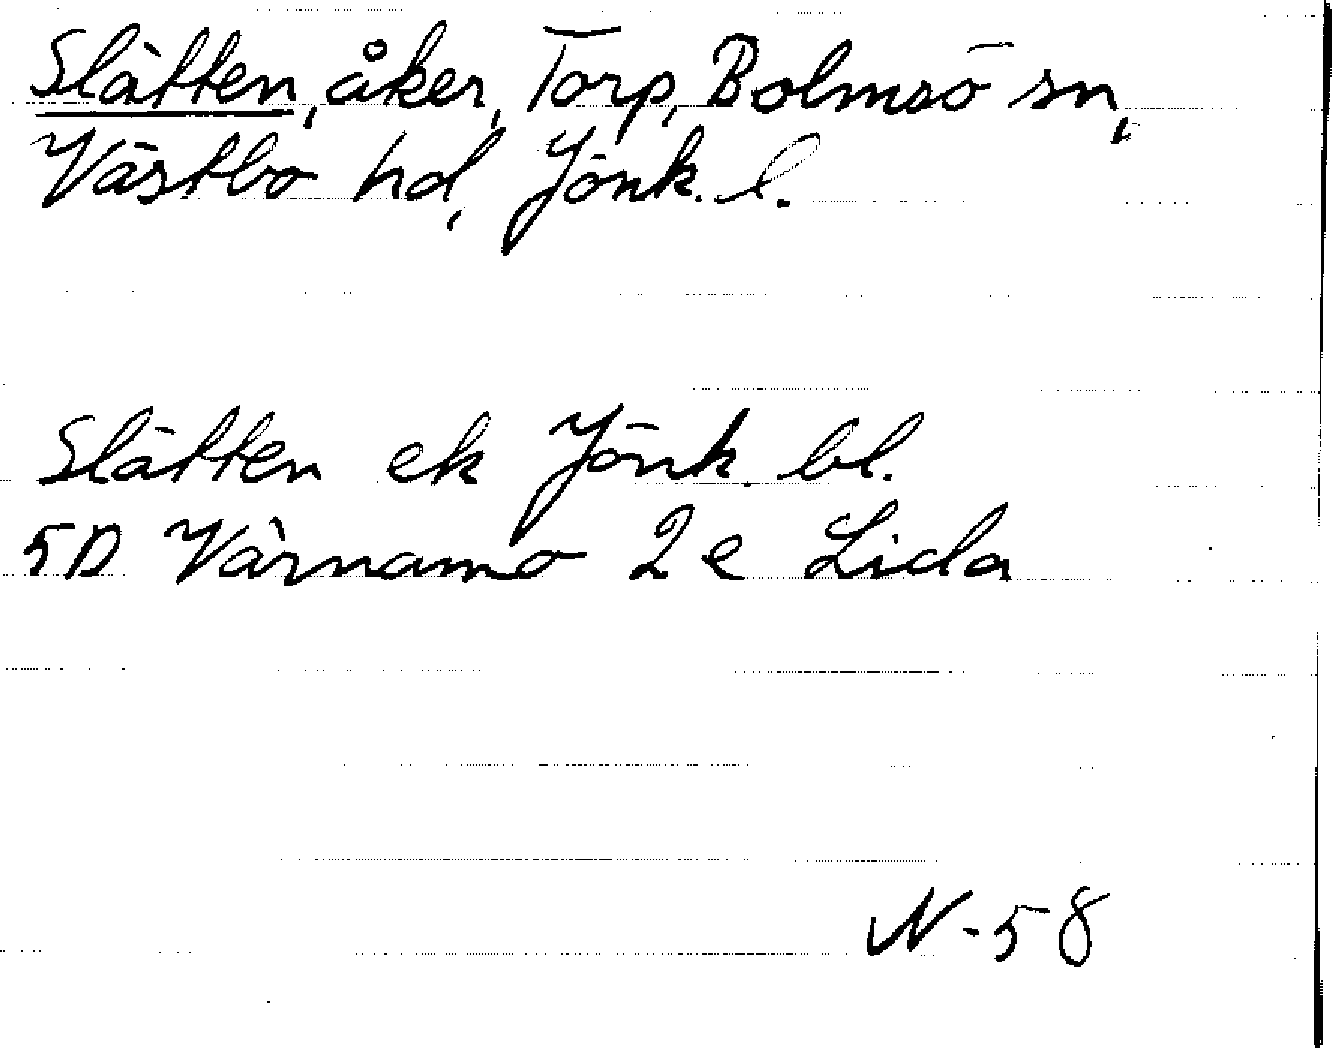 Slätten, åker, Torp, Bolmsö sn,
Västbo hd, Jönk. l.
Slätten ek Jönk. bl.
5D Värnamo 2e Lida
N-58